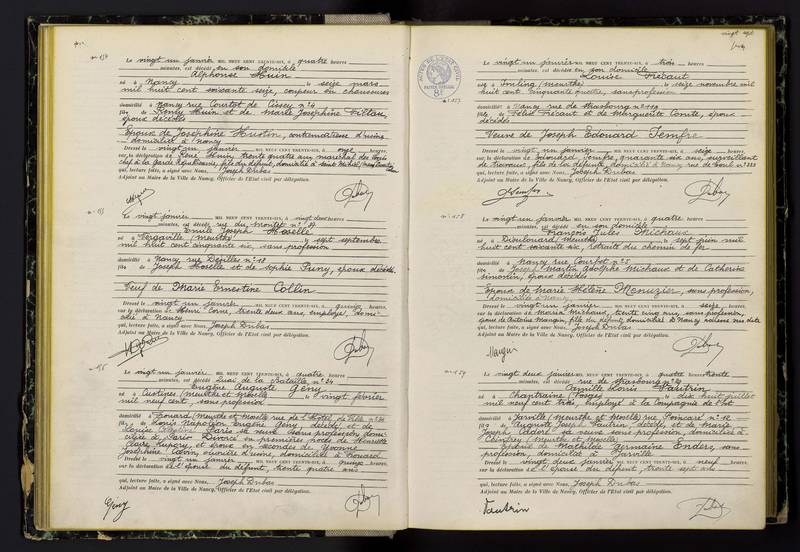 n° 154
Le vingt un janvier MIL NEUF CENT TRENTE-SIX, à quatre heures
minutes, est décédé en son domicile
Alphonse Huin
né à Nancy le seize mars
mil huit cent soixante seize, coupeur en chaussures
domicilié à Nancy rue Courtot de Cissey n° 4
fils de Rémy Huin et de Marie Joséphine
époux décédés
Epoux de Joséphine Hustin, contremaîtresse d'usine
domiciliée à Nancy
Dressé le vingt un janvier MIL NEUF CENT TRENTE-SIX, à onze heures,
sur la déclaration de René Huin, trente quatre ans maréchal des logis
chef à la Garde Républicaine, fils du défunt, domicilié à Saint Michel
qui, lecture faite, a signé avec Nous, Joseph Dubas
Adjoint au Maire de la Ville de Nancy, Officier de l'Etat civil par délégation.
n° 155
Le vingt janvier MIL NEUF CENT TRENTE-SIX, à vingt deux heures
minutes, est décédé rue du montet n°
Emile Joseph Hoselle
né à Vergaville (Meurthe) le sept septembre
mil huit cent cinquante six, sans profession
domicilié à Nancy rue Dézilles n° 18
fils de Joseph Hoselle et de Sophie Puny, époux décédés
Veuf de Marie Ernestine Collin
Dressé le vingt un janvier MIL NEUF CENT TRENTE-SIX, à quinze heures,
sur la déclaration de Henri Cornu, trente deux ans, employé, domi-
cilié à Nancy
qui, lecture faite, a signé avec Nous, Joseph Dubas
Adjoint au Maire de la Ville de Nancy, Officier de l'Etat civil par délégation.
Le vingt un janvier MIL NEUF CENT TRENTE-SIX, à quatre heures
minutes, est décédé Quai de la Bataille n° 24
Eugène Auguste Gény
né à Custines (Meurthe et Moselle) le vingt février
mil neuf cent, sans profession
domicilié à Frouard (Meurthe et Moselle) rue de l'Hôtel de Ville
fils de Louis Napoléon Eugène Gény, décédé et de
Paris sa veuve sans profession domi-
ciliée à Paris Divorcé en premières noces de
Claire Dupory, et Epoux en secondes de Yvonne
Joséphine ouvrière d'usine, domiciliée à Frouard
Dressé le vingt un janvier MIL NEUF CENT TRENTE-SIX, à quinze heures,
sur la déclaration de l'épouse du défunt, trente quatre ans
qui, lecture faite, a signé avec Nous, Joseph Dubas
Adjoint au Maire de la Ville de Nancy, Officier de l'Etat civil par délégation.
Gény
vingt sept
n° 157
Le vingt un janvier MIL NEUF CENT TRENTE-SIX, à trois heures
minutes, est décédée en son domicile
Louise Trécaut
née à Imling (Meurthe) le seize novembre mil
huit cent cinquante quatre, sans profession
domiciliée à Nancy rue de Strasbourg n° 119
fille de Félix Trécaut et de Marguerite Comte, époux
décédés
Veuve de Joseph Edouard Jemfre
Dressé le vingt un janvier MIL NEUF CENT TRENTE-SIX, à seize heures,
sur la déclaration de Edouard Jemfre, quarante six ans, surveillant
de travaux, fils de la défunte, domicilié à Nancy rue de Toul n°
qui, lecture faite, a signé avec Nous, Joseph Dubas
Adjoint au Maire de la Ville de Nancy, Officier de l'Etat civil par délégation.
n° 158
Le vingt un janvier MIL NEUF CENT TRENTE-SIX, à quatre heures
minutes, est décédé en son domicile
François Jules Michaux
né à Dieulouard (Meurthe) le sept juin mil
huit cent soixante six, retraité du chemin de fer
domicilié à Nancy rue Courbet n° 5
fils de Joseph Martin Adolphe Michaux et de Catherine
Simonin, époux décédés
Epoux de Marie Hélène Menuzier, sans profession,
domiciliée à Nancy
Dressé le vingt un janvier MIL NEUF CENT TRENTE-SIX, à seize heures,
sur la déclaration de Maria Michaux, trente cinq ans, sans profession,
épouse de Antoine Mangin, fille du défunt, domiciliée à Nancy même rue
qui, lecture faite, a signé avec Nous, Joseph Dubas
Adjoint au Maire de la Ville de Nancy, Officier de l'Etat civil par délégation.
Mangin
n° 159
Le vingt deux janvier MIL NEUF CENT TRENTE-SIX, à quatre heures trente
minutes, est décédé rue de Strasbourg n°
Camille Louis Vautrin
né à Chantraine (Vosges) le dix huit juillet
mil neuf cent trois, employé à la Compagnie de l'Est
domicilié à Jarville (Meurthe et Moselle) rue Poincaré n° 12
fils de Auguste Joseph Vautrin, décédé, et de Marie
Joseph Cadoré sa veuve sans profession, domiciliée à
Chintrey (Meurthe et Moselle)
Epoux de Mathilde Germaine Enders, sans
profession, domiciliée à Jarville
Dressé le vingt deux janvier MIL NEUF CENT TRENTE-SIX, à neuf heures,
sur la déclaration de l'épouse du défunt, trente sept ans
qui, lecture faite, a signé avec Nous, Joseph Dubas
Adjoint au Maire de la Ville de Nancy, Officier de l'Etat civil par délégation.
Vautrin